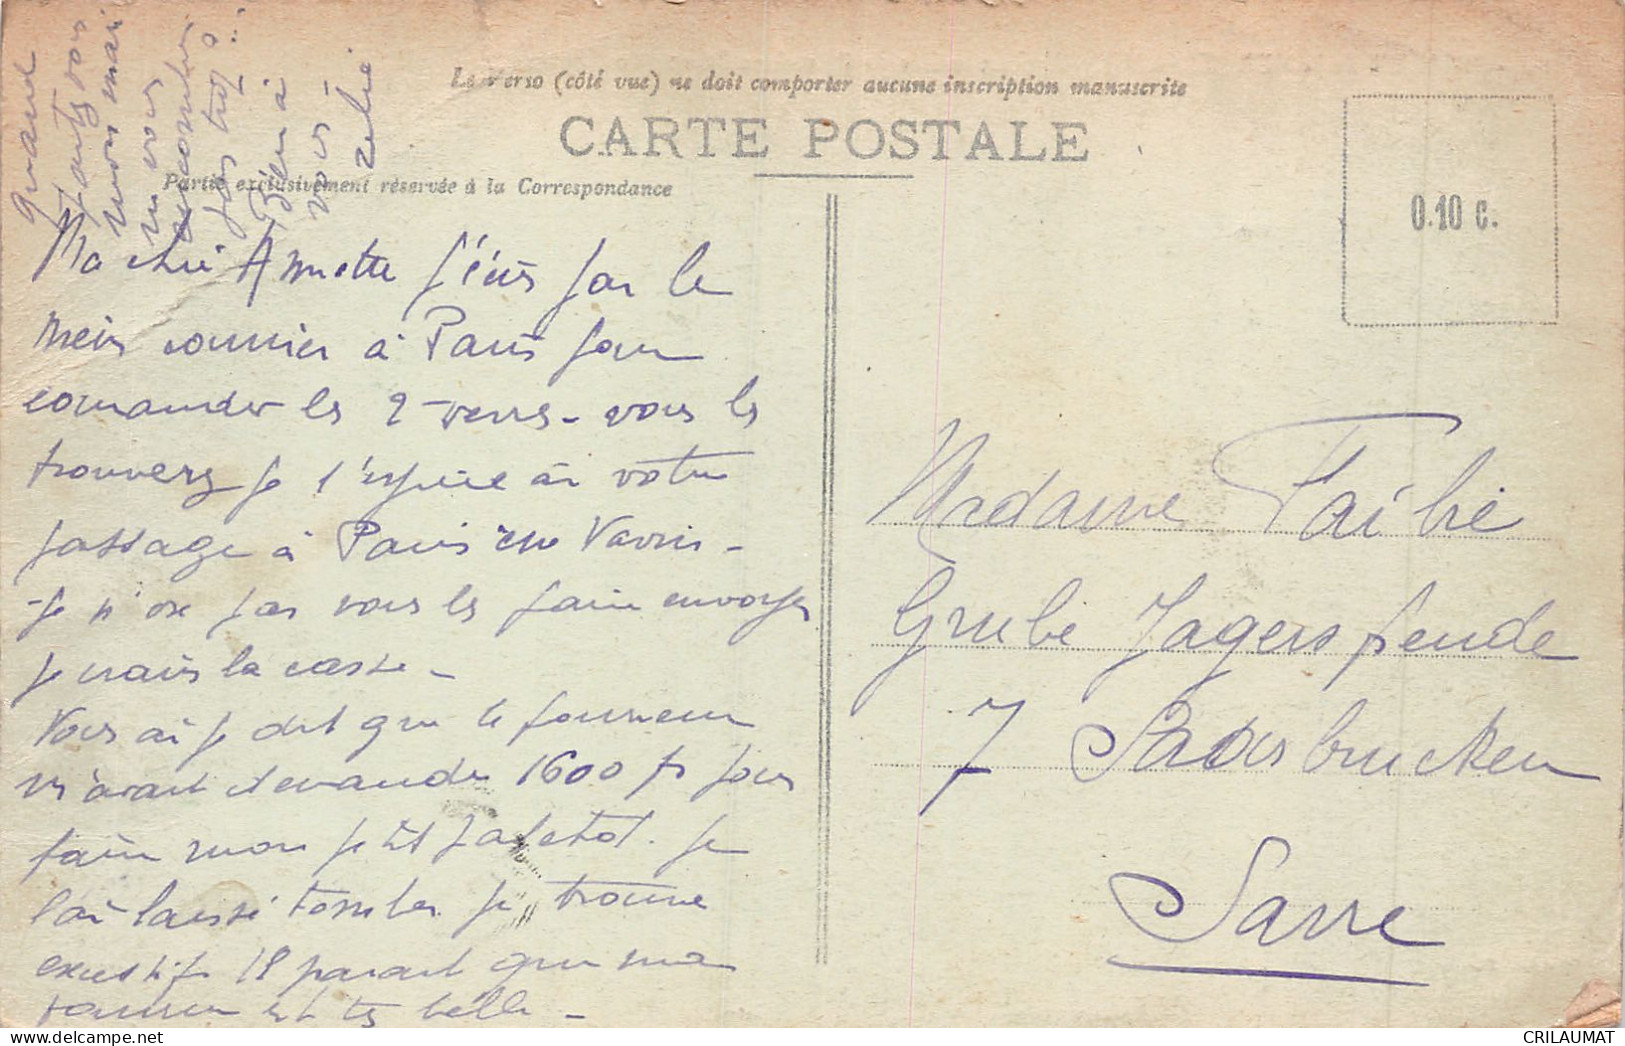 Le Verso (côté vue) ne doit comporter aucune inscription manuscrite
CARTE POSTALE
Partie exclusivement réservée à la Correspondance
0.10 c.
quand
partez vous
mon mari
vous
pas trop !
Bien à
vous
Ma chère Annette j'écris par le
même courrier à Paris pour
comander les 2 verres - vous les
trouverez je l'espère à votre
passage à Paris
je n'ose pas vous les faire envoyer
je crains la casse -
Vous ai je dit que le fourreur
m'avait demandé 1600 fr pour
faire mon petit paletot. je
l'ai laissé tomber je trouve
excessif. Il parait que ma
est très belle -
Madame Faibie
Grube Jagersfreude
7 Saarbrucken
Sarre
CRILAUMAT